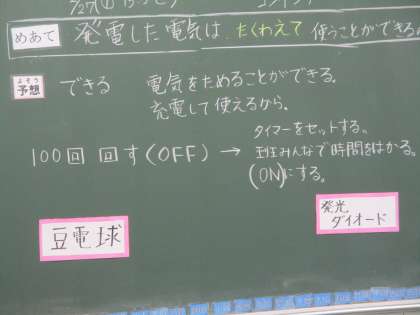 めあて 発電した電気は、たくわえて使うことができる
よそう
予想 できる 電気をためることができる。
充電して使えるから。
100回 回す(OFF) → タイマーをセットする。
班みんなで時間をはかる。
(ON)にする。
豆電球
発光
ダイオード